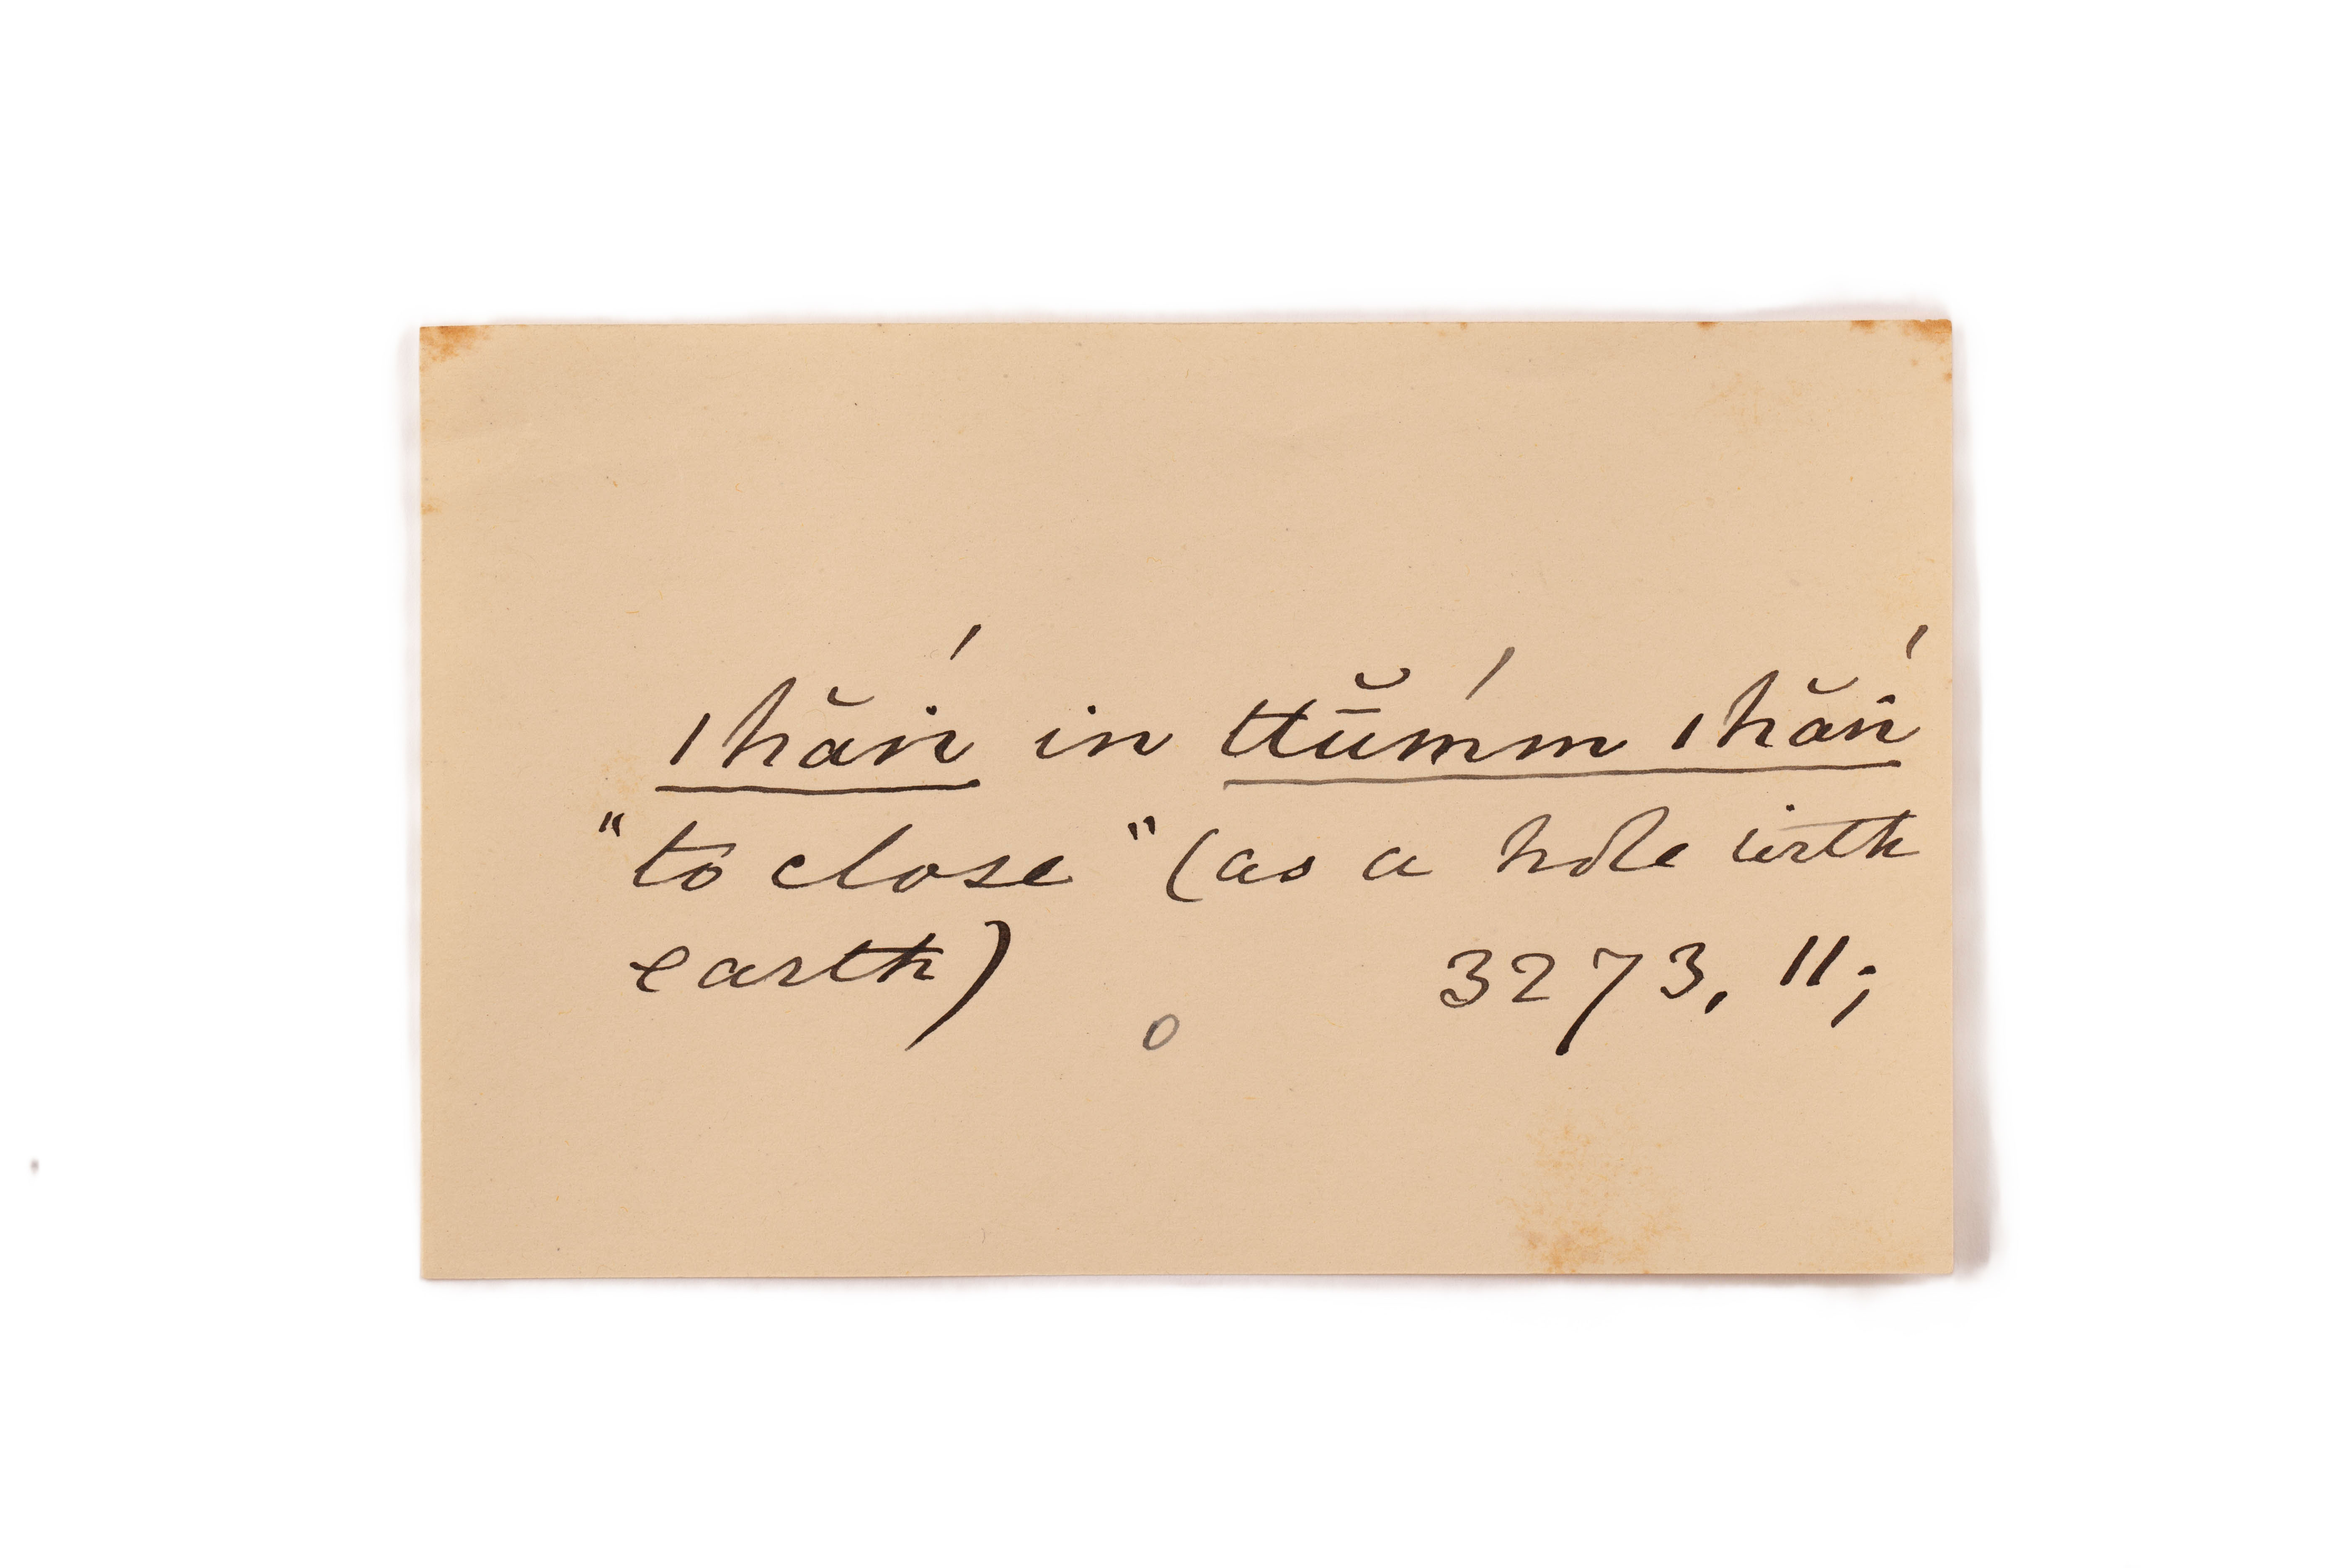 ǀhăṅ́ in ttū̆ḿm ǀhăṅ́
"to close" (as a hole with
earth) 3273, 11;
o